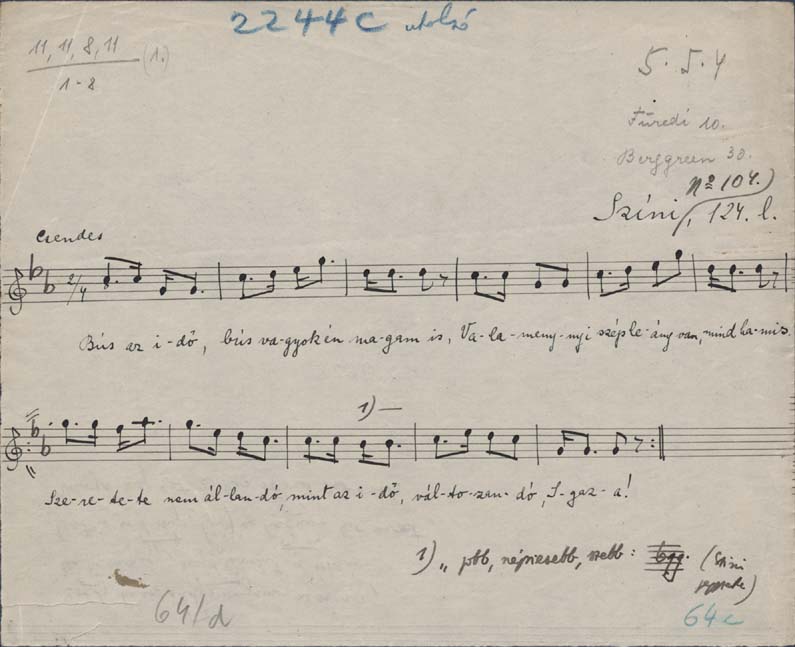 2244c utolsó
11, 11, 8, 11 (1.)
1-8
5. 5. 4
Füredi 10.
Berggreen 30.
Nº 104.)
Színi, 124. l.
Csendes
2/4
Bús az i-dő, bús va-gyok én ma-gam is, Va-la-meny-nyi szép le-ány van, mind ha-mis.
1)—
Sze-re-te-te nem ál-lan-dó, mint az i-dő, vál-to-zan-dó, I-gaz-a!
1) „ jobb, népiesebb, szebb: (Színi
64/d
64c